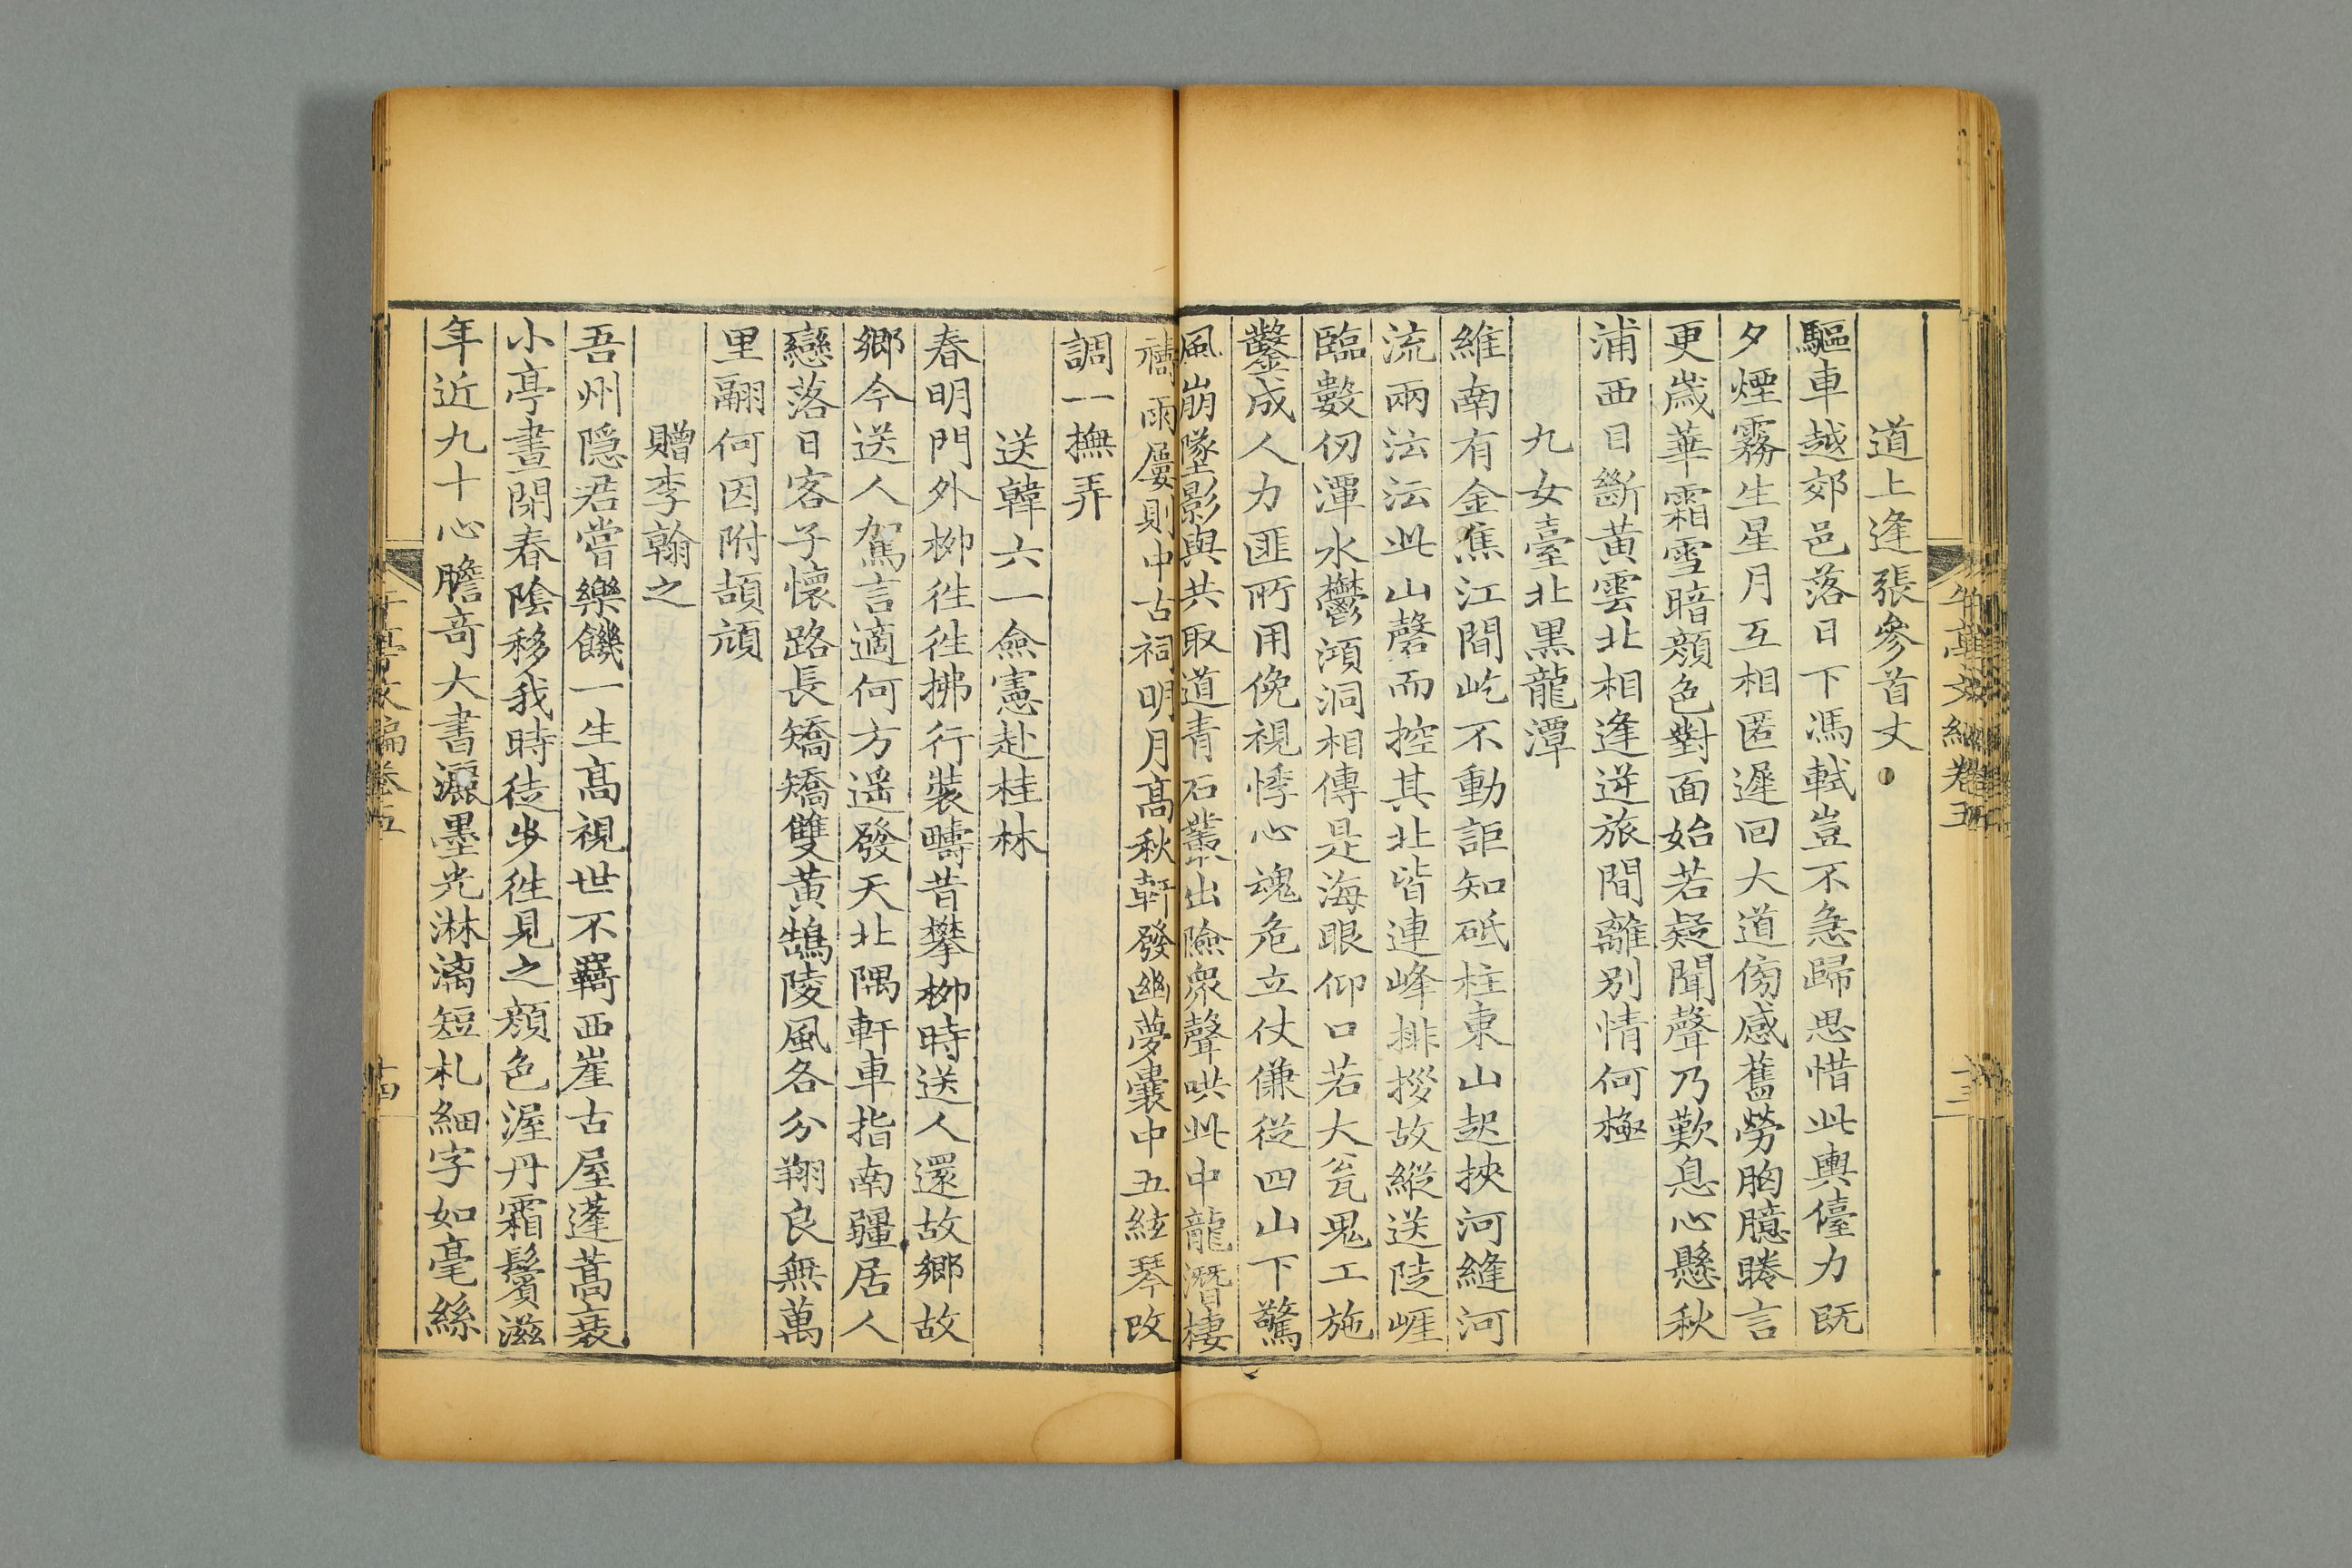 道上逢張參首丈
驅車越郊邑落日下馮軾豈不急歸思惜此輿儓力既
夕煙霧生星月互相匿遲回大道傍感舊勞胸臆睠言
更歲華霜雪暗顏色對面始若疑聞聲乃歎息心懸秋
浦西目斷黃雲北相逢逆旅間離別情何極
九女臺北黑龍潭
維南有金焦江間屹不動詎知砥柱東山起挾河縫河
流兩沄沄此山罄而控其北皆連峰排拶故縱送陡崕
臨數仞渾水鬱澒洞相傳是海眼仰口若大瓮鬼工施
鑿成人力匪所用俛視悸心魂危立仗傔從四山下驚
風崩墜影與共取道青石叢出險衆聲哄此中龍潛棲
禱雨屢則中古祠明月高秋軒發幽夢囊中五絃琴改
調一撫弄
送韓六一僉憲赴桂林
春明門外栁徃徃拂行裝疇昔攀栁時送人還故鄉故
鄉今送人駕言適何方遥發天北隅軒車指南疆居人
戀落日客子懷路長矯矯雙黃鵠陵風各分翔良無萬
里翮何因附頡頏
贈李翰之
吾州隱君嘗樂饑一生高視世不羈西崖古屋蓬蒿衰
小亭晝閉春陰移我時徒步徃見之顏色渥丹霜鬢滋
年近九十心膽奇大書灑墨光淋漓短札細字如毫絲